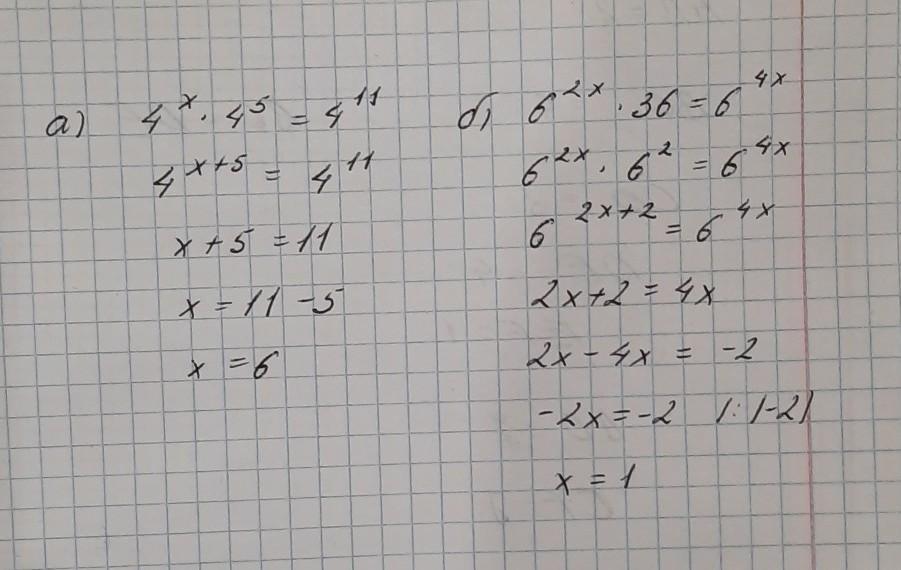 а) 4^x · 4^5 = 4^11
4^(x+5) = 4^11
x + 5 = 11
x = 11 - 5
x = 6
б) 6^2x · 36 = 6^4x
6^2x · 6^2 = 6^4x
6^(2x+2) = 6^4x
2x+2 = 4x
2x - 4x = -2
-2x = -2 |: (-2)
x = 1